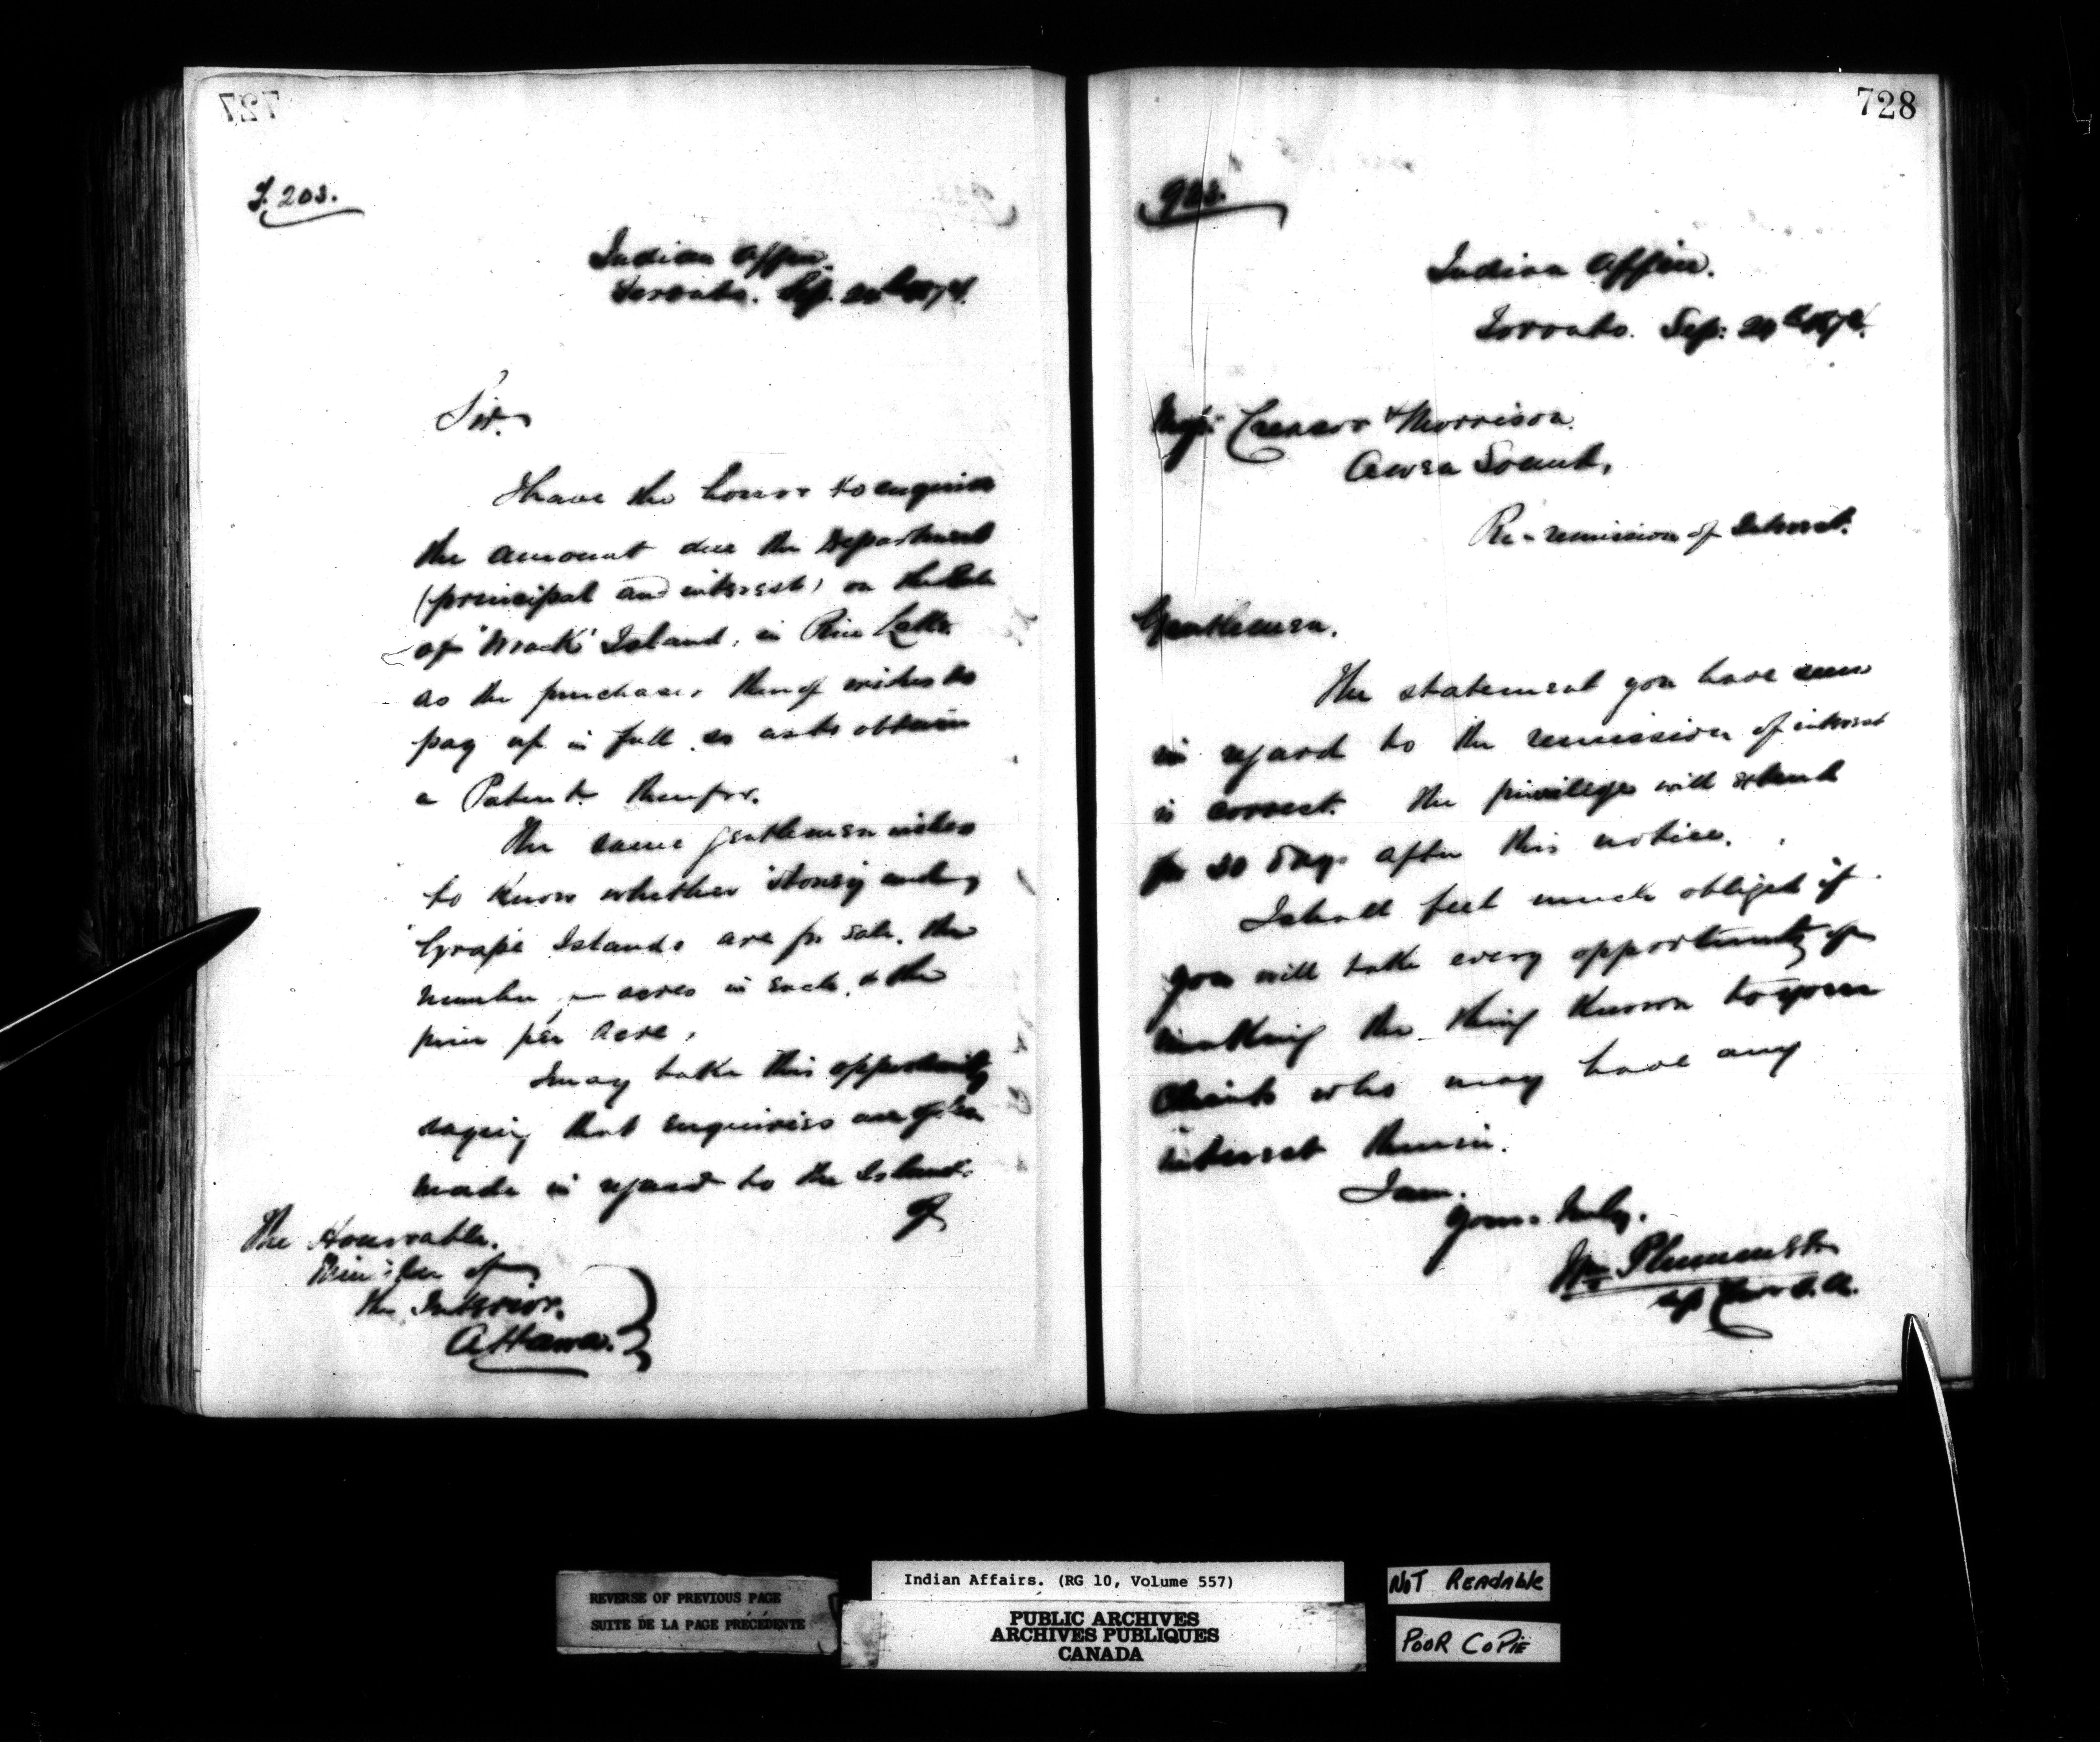 727
J. 203.
Indian Affairs.
Toronto. Sep. 1874.
Sir.
I have the honor to enquire
the amount due the Department
(principal and interest) on the
of "Wrack" Island, in Rice Lake
as the purchaser thereof wishes to
pay up in full so as to obtain
a Patent therefor.
The same gentleman wishes
to know whether "Stoney" and
"Grape" Islands are for sale. the
number acres in each, & the
price per acre.
I may take this opportunity
saying that enquiries are often
made in regard to the Islands.
The Honorable.
Minister of
the Interior.
Ottawa.
728
923.
Indian Affairs.
Toronto. Sep: 24th 1874.
Mess: Creasor & Morrison.
Owen Sound.
Re-remission of Interest.
Gentlemen.
The statement you have seen
in regard to the remission of interest
is correct. The privilege will extend
for 30 days after this notice.
I shall feel much obliged if
you will take every opportunity of
making the thing known to your
clients who may have any
interest therein.
I am.
Yours truly.
Wm Plummer
REVERSE OF PREVIOUS PAGE
SUITE DE LA PAGE PRÉCÉDENTE
Indian Affairs. (RG 10, Volume 557)
PUBLIC ARCHIVES
ARCHIVES PUBLIQUES
CANADA
NOT READABLE
POOR COPIE